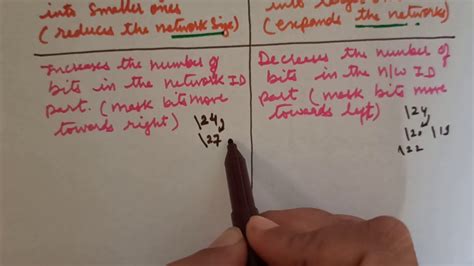 into smaller ones
(reduces the network size)
Increases the number of
bits in the network ID
part. (mask bits move
towards right)
\24
\27
(expands the networks)
Decreases the number of
bits in the N/W ID
part (mask bits move
towards left)
\24
\20 \19
\22